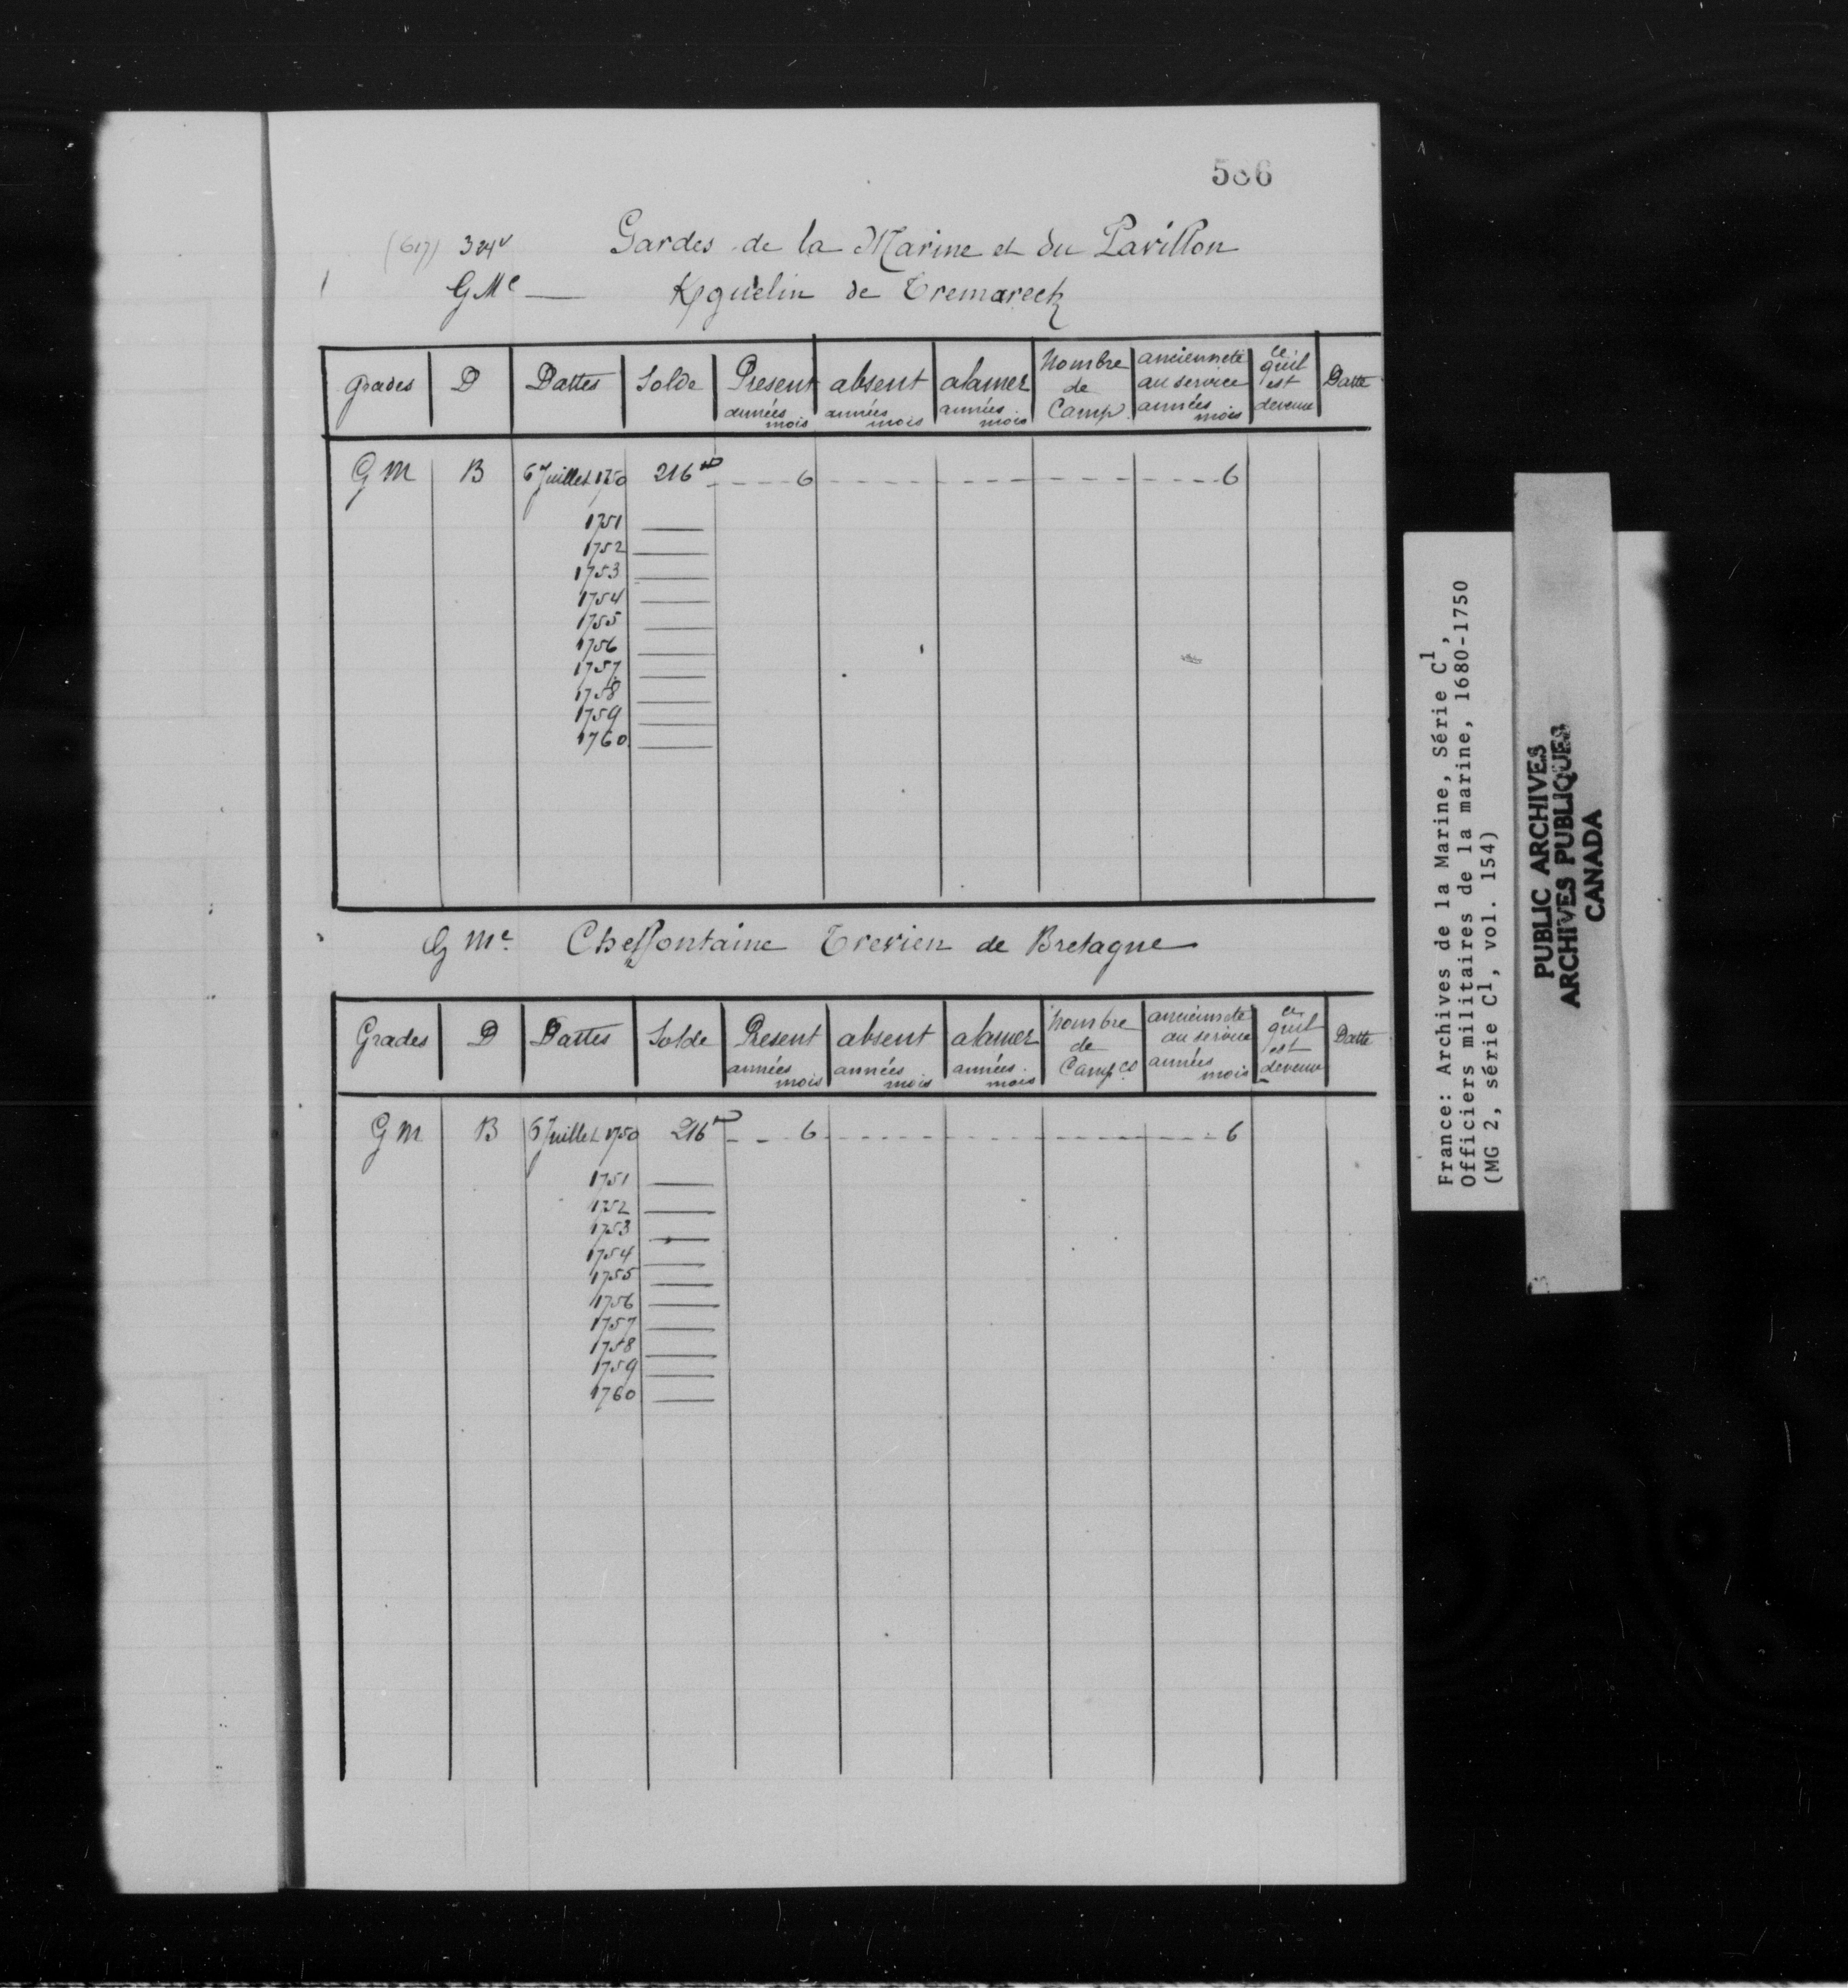 586
(617) 324v Gardes de la Marine et du Pavillon
GMe — Kguelin de Tremareck
Grades D Dattes Solde Present absent alamer Nombre de Camp. ancienneté au service ce qu'il est devenu Datte
années mois années mois années mois années mois
GM B 6 Juillet 1750 216# 6 6
1751
1752
1753
1754
1755
1756
1757
1758
1759
1760
GMe. Cheffontaine Trevien de Bretagne
Grades D Dattes Solde Present absent alamer Nombre de Campes ancienneté au service ce quil est devenu Datte
années mois années mois années mois années mois
GM B 6 Juillet 1750 216# 6 6
1751
1752
1753
1754
1755
1756
1757
1758
1759
1760
France: Archives de la Marine, Série C1,
Officiers militaires de la marine, 1680-1750
(MG 2, série C1, vol. 154)
PUBLIC ARCHIVES
ARCHIVES PUBLIQUES
CANADA